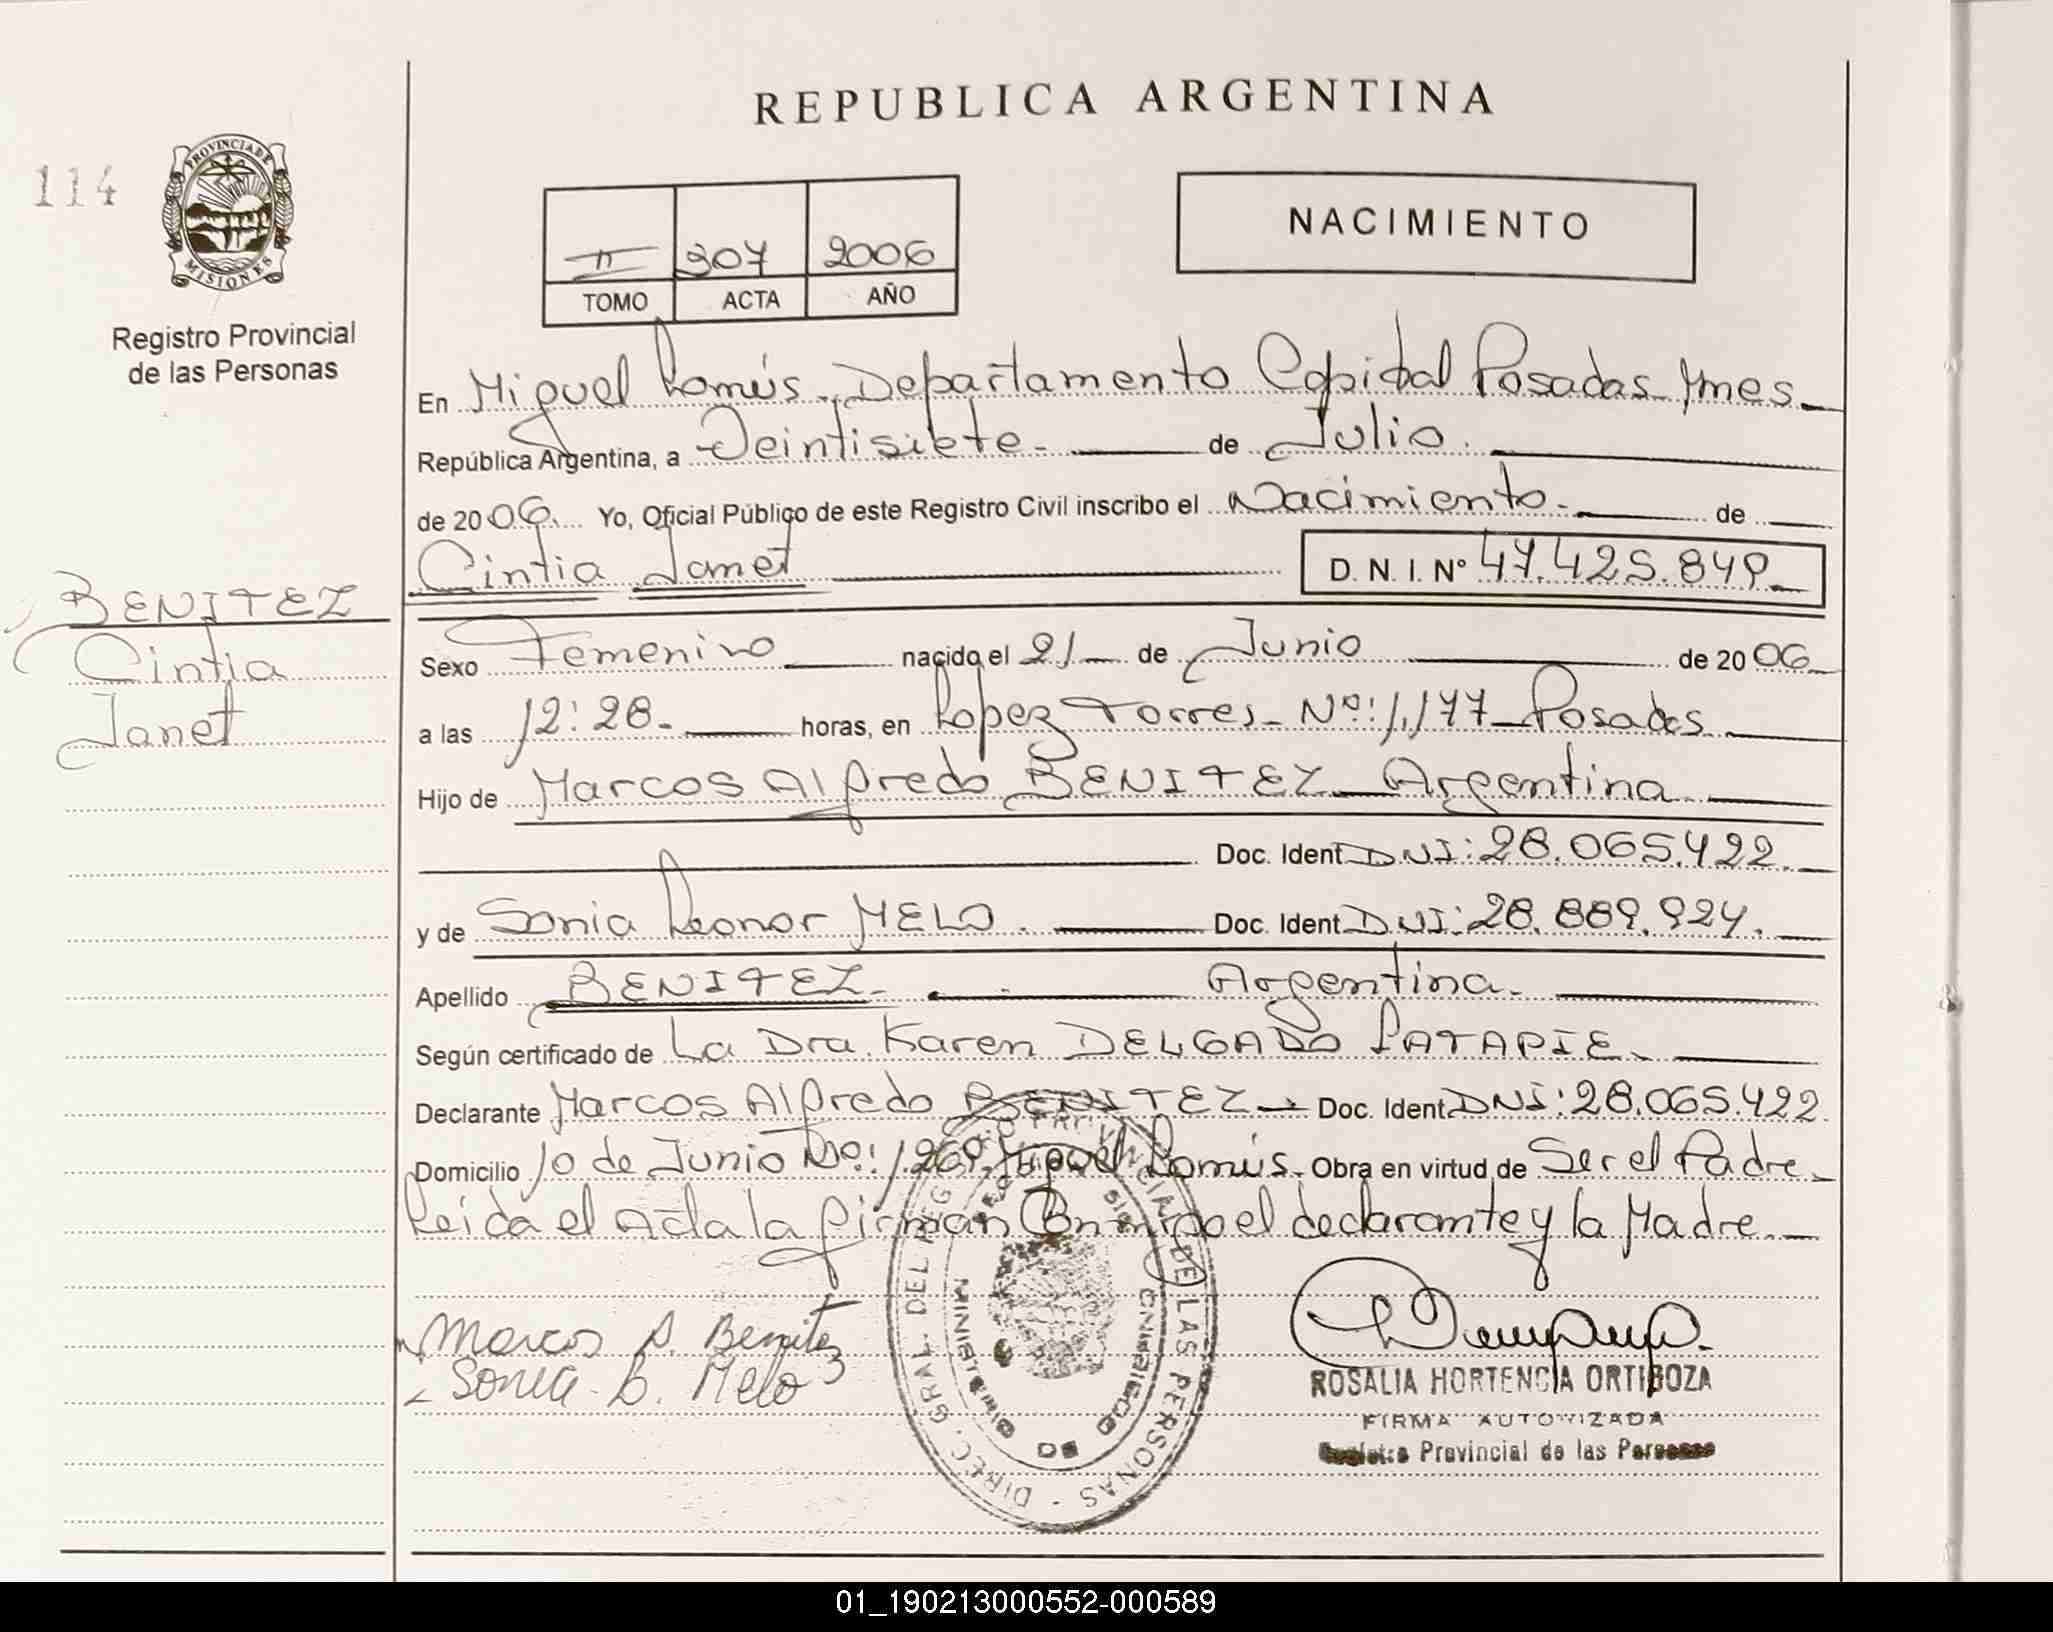 REPUBLICA ARGENTINA
114
PROVINCIA DE
MISIONES
Registro Provincial
de las Personas
II 307 2006
TOMO ACTA AÑO
NACIMIENTO
En Miguel Lanús. Departamento Capital Posadas Mnes
República Argentina, a Veintisiete de Julio.
de 2006. Yo, Oficial Público de este Registro Civil inscribo el Nacimiento. de
Cintia Janet D.N.I. Nº 47.425.849
BENITEZ
Cintia
Janet
Sexo Femenino nacido el 21 de Junio de 2006
a las 12:28. horas, en Lopez Torres Nº: 1.177 Posadas
Hijo de Marcos Alfredo BENITEZ Argentina
Doc. Ident DNI: 28.065.422.
y de Sonia Leonor MELO. Doc. Ident DNI: 28.889.924.
Apellido BENITEZ. Argentina.
Según certificado de La Dra. Karen DELGADO
Declarante Marcos Alfredo BENITEZ Doc. Ident DNI: 28.065.422
Domicilio 10 de Junio Nº: 1.269 Miguel Lanús. Obra en virtud de Ser el Padre.
Leida el Acta la firman Conmigo el declarante y la Madre.
Marcos A. Benitez
Sonia L. Melo
DIREC. GRAL. DEL REG. PROVINCIAL DE LAS PERSONAS
MINISTERIO DE GOBIERNO
ROSALIA HORTENCIA ORTIGOZA
FIRMA AUTORIZADA
Registro Provincial de las Personas
01_190213000552-000589